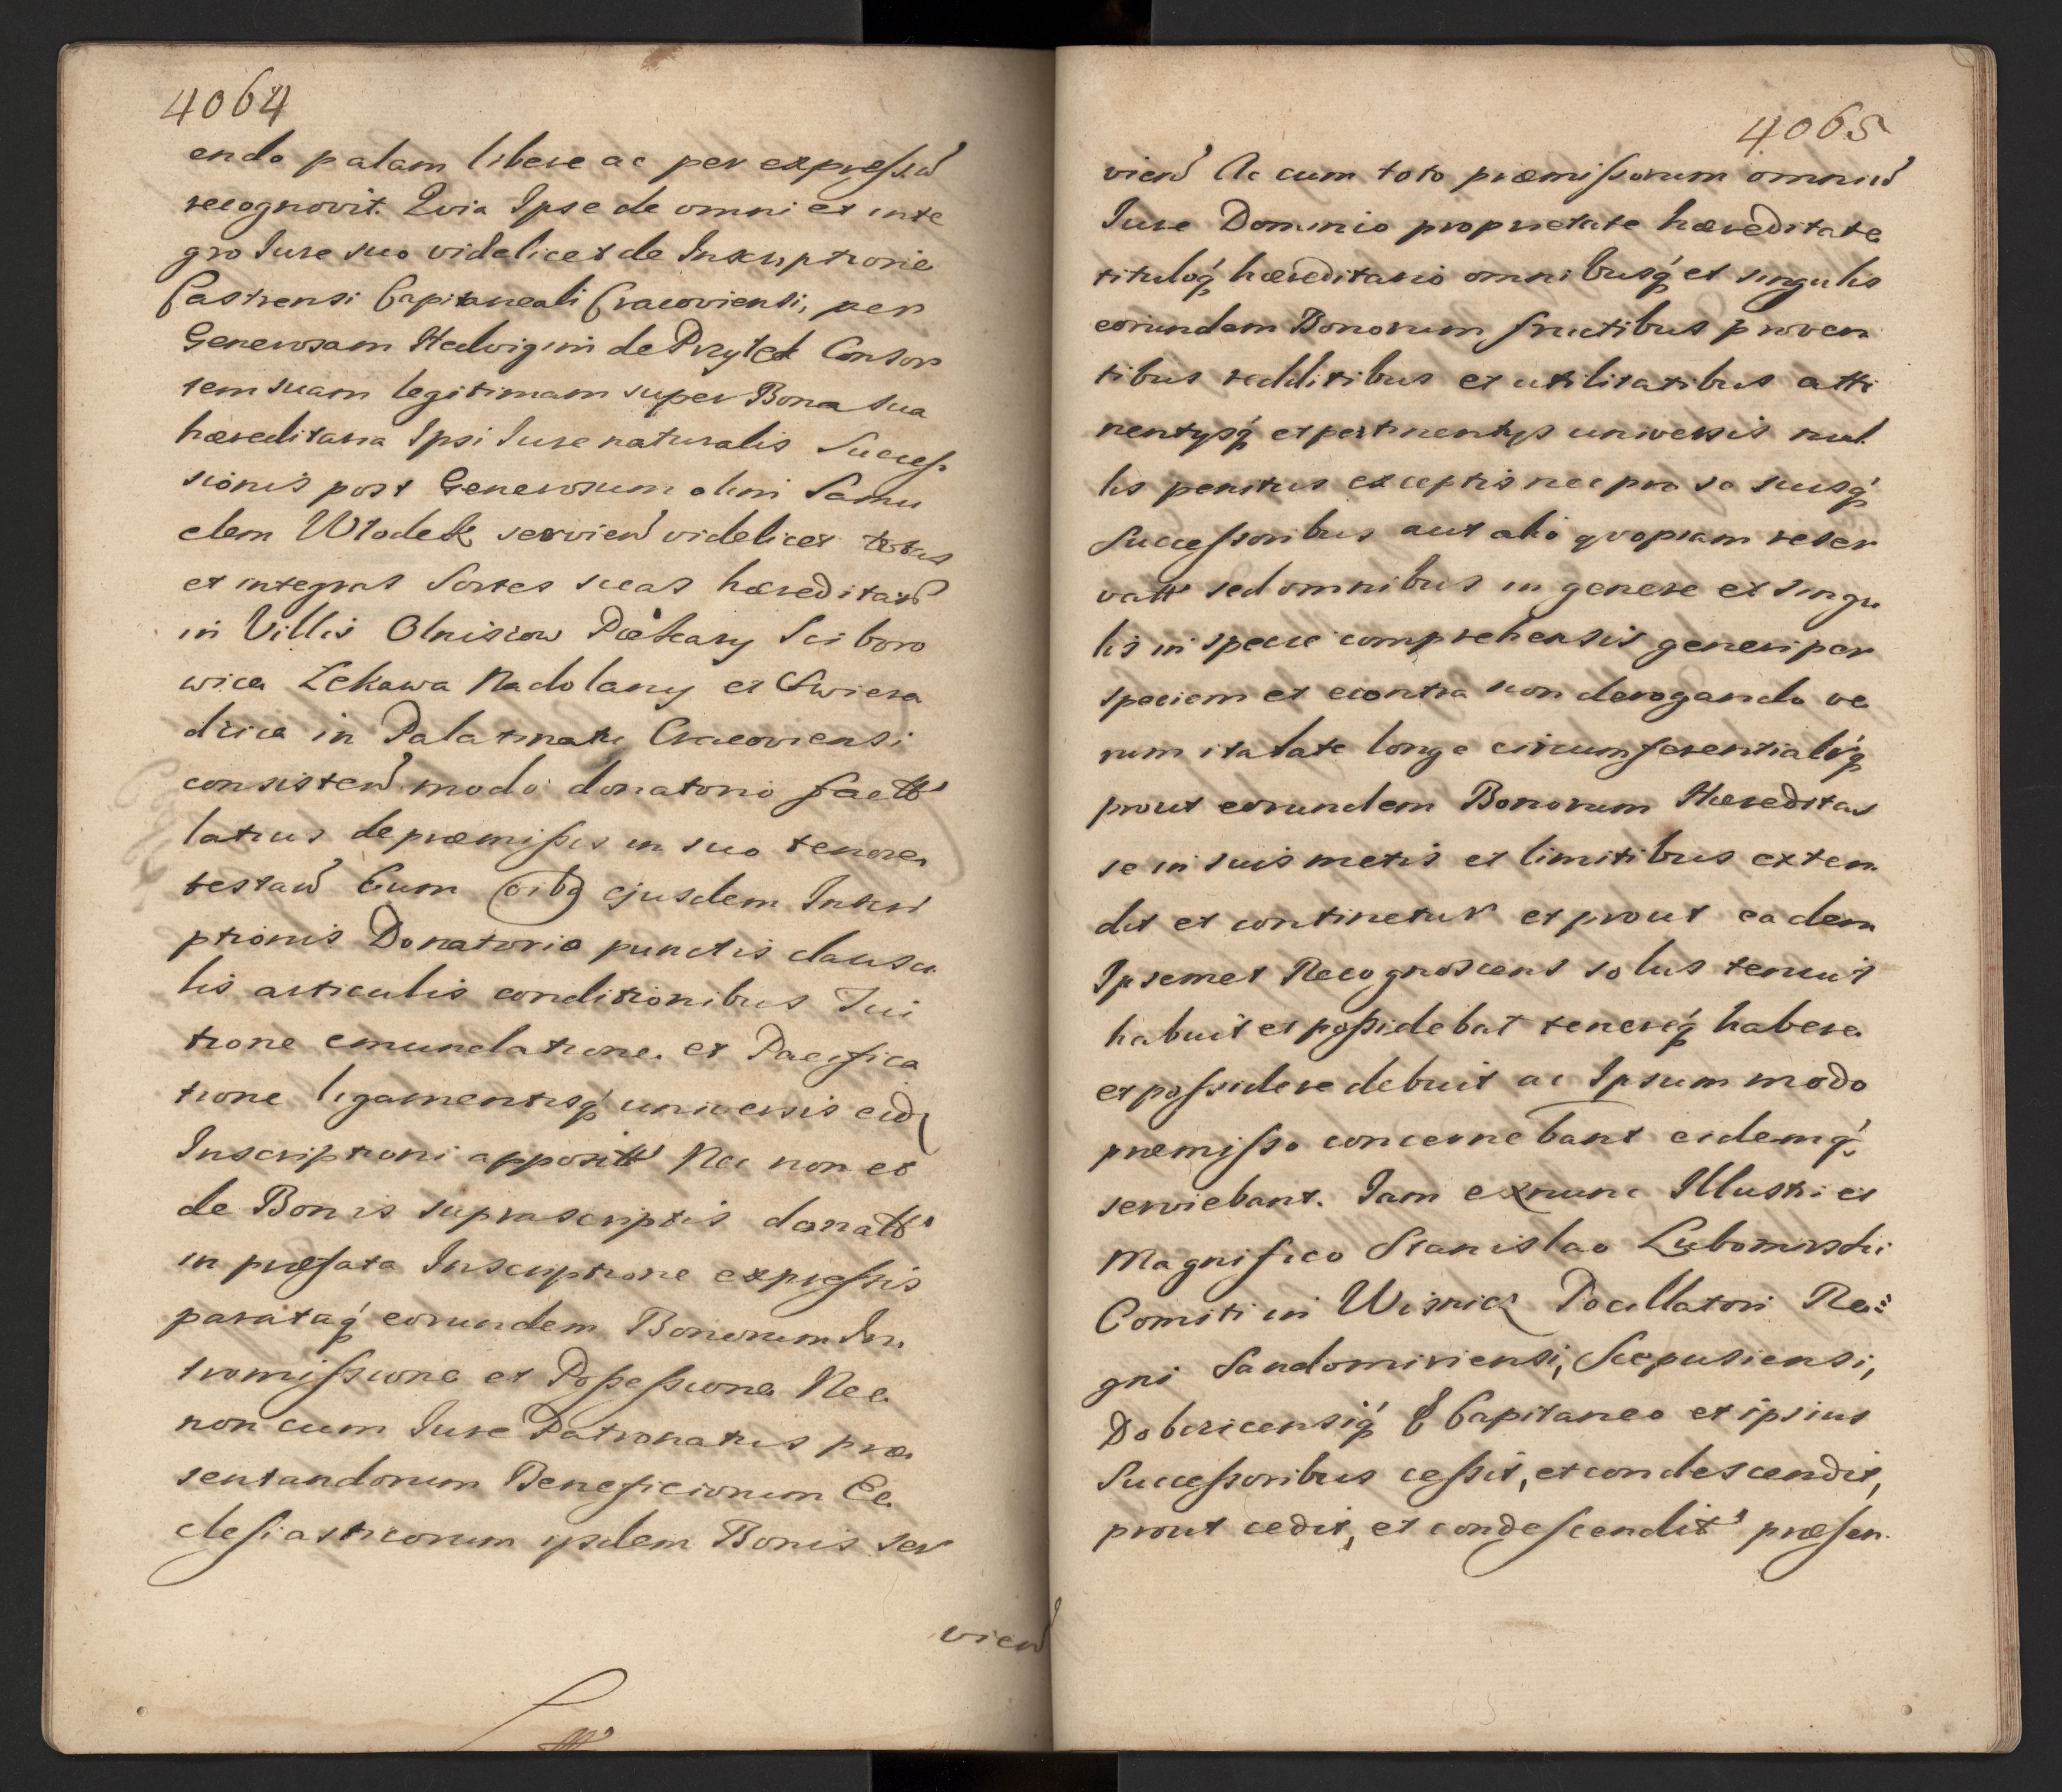 4064
endo palam libere ac per expressũ
recognovit. Quia Ipse de omni et inte
gro Iure suo videlicet de Inscriptione
Castrensi Capitaneali Cracoviensi, per
Generosam Hedvigim de Przytek Consor
tem suam legitimam super Bona sua
hæreditaria Ipsi Iure naturalis Succes
sionis post Generosum olim Samu
elem Włodek servień videlicet totas
et integras Sortes suas hæreditar̃
in Villis Olnisiow Piekary Sciboro
wice Lekawa Nadolany et Swiera
dzice in Palatinatu Cracoviensi
consisteñ modo donatorio factt
latius de præmissis in suo tenore
testañ Cum oibq ejusdem Inscri
ptionis Donatoria punctis clausu
lis articulis conditionibus Tui
tione emundatione et Pacifica
tione ligamentisq́ universis eid
Inscriptioni apposittt Nec non et
de Bonis suprascriptis donattt
in præfata Inscriptione expressis
parataq́ eorundem Bonorum In
tromissione et Possessione Nec
non cum Iure Patronatus præ
sentandorum Beneficiorum Ec
clesiasticorum ijsdem Bonis ser
vień
4065
vień Ac cum toto præmissorum omniũ
Iure Dominio proprietate hæreditate
tituloq́ hæreditario omnibusq́ et singulis
eorundem Bonorum fructibus proven
tibus redditibus et utilitatibus atti
nentysq́ et pertinentys universis nul
lis penitus exceptis nec pro se suisq́
Successoribus aut alio quopiam reser
vattt sed omnibus in genere et singu
lis in specie comprehensis generi per
speciem et econtra non derogando ve
rum ita late longe circumferentialiq́
prout eorundem Bonorum Hæreditas
se in suis metis et limitibus exten
dit et continetur et prout eadem
Ipsemet Recognoscens solus tenuit
habuit et possidebat tenereq́ habere
et possidere debuit ac Ipsum modo
præmisso concernebant eidemq́
serviebant. Iam exnunc Illustri et
Magnifico Stanislao Lubomirski
Comiti in Wisnicz Pocillatori Re:
gni Sandomiriensi, Scepusiensi,
Dobczicensiq́ Capitaneo et ipsius
Successoribus cessit, et condescendit,
prout cedit, et condescendit præsen